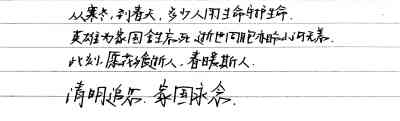 从寒冬,到春天,多少人用生命守护生命.
英雄为家国舍生忘死 逝世同胞亦
此刻,愿花绕斯人,春暖斯人.
清明追念.家国永念.